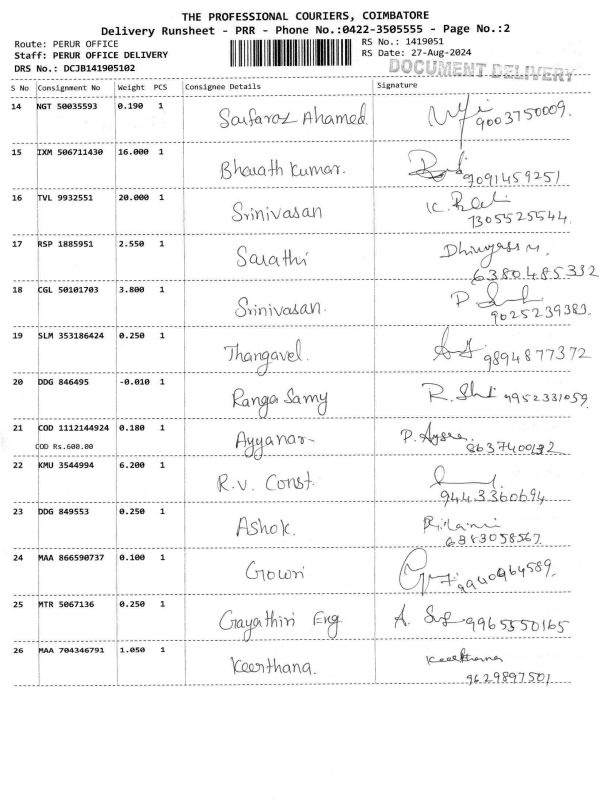 THE PROFESSIONAL COURIERS, COIMBATORE
Delivery Runsheet - PRR - Phone No.:0422-3505555 - Page No.:2
Route: PERUR OFFICE
RS No.: 1419051
Staff: PERUR OFFICE DELIVERY
RS Date: 27-Aug-2024
DRS No.: DCJB141905102
DOCUMENT DELIVERY
S No Consignment No Weight PCS Consignee Details Signature
14 NGT 50035593 0.190 1 Sarfaraz Ahamed
9003750009.
15 IXM 506711430 16.000 1 Bharath Kumar.
7091459251
16 TVL 9932551 20.000 1 Srinivasan
7305525544.
17 RSP 1885951 2.550 1 Sarathi
6380485332
18 CGL 50101703 3.800 1 Srinivasan.
9025239383.
19 SLM 353186424 0.250 1 Thangavel.
9894877372
20 DDG 846495 -0.010 1 Ranga Samy R. 9952331059
21 COD 1112144924 0.180 1 Ayyanar P.
COD Rs.600.00
8637400132
22 KMU 3544994 6.200 1 R.V. Const.
9443360694
23 DDG 849553 0.250 1 Ashok.
6383058567
24 MAA 866590737 0.100 1 Gowri
25 MTR 5067136 0.250 1 Gayathiri Eng A. 9965550165
26 MAA 704346791 1.050 1 Keerthana. Keerthana
9629897501